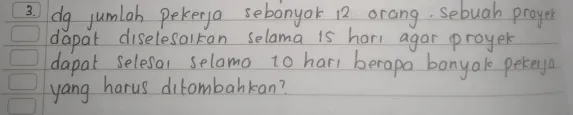 3. dg jumlah pekerja sebanyak 12 orang. sebuah proyek
dapat diselesaikan selama 15 hari agar proyek
dapat selesai selama 10 hari berapa banyak pekerja
yang harus ditambahkan?